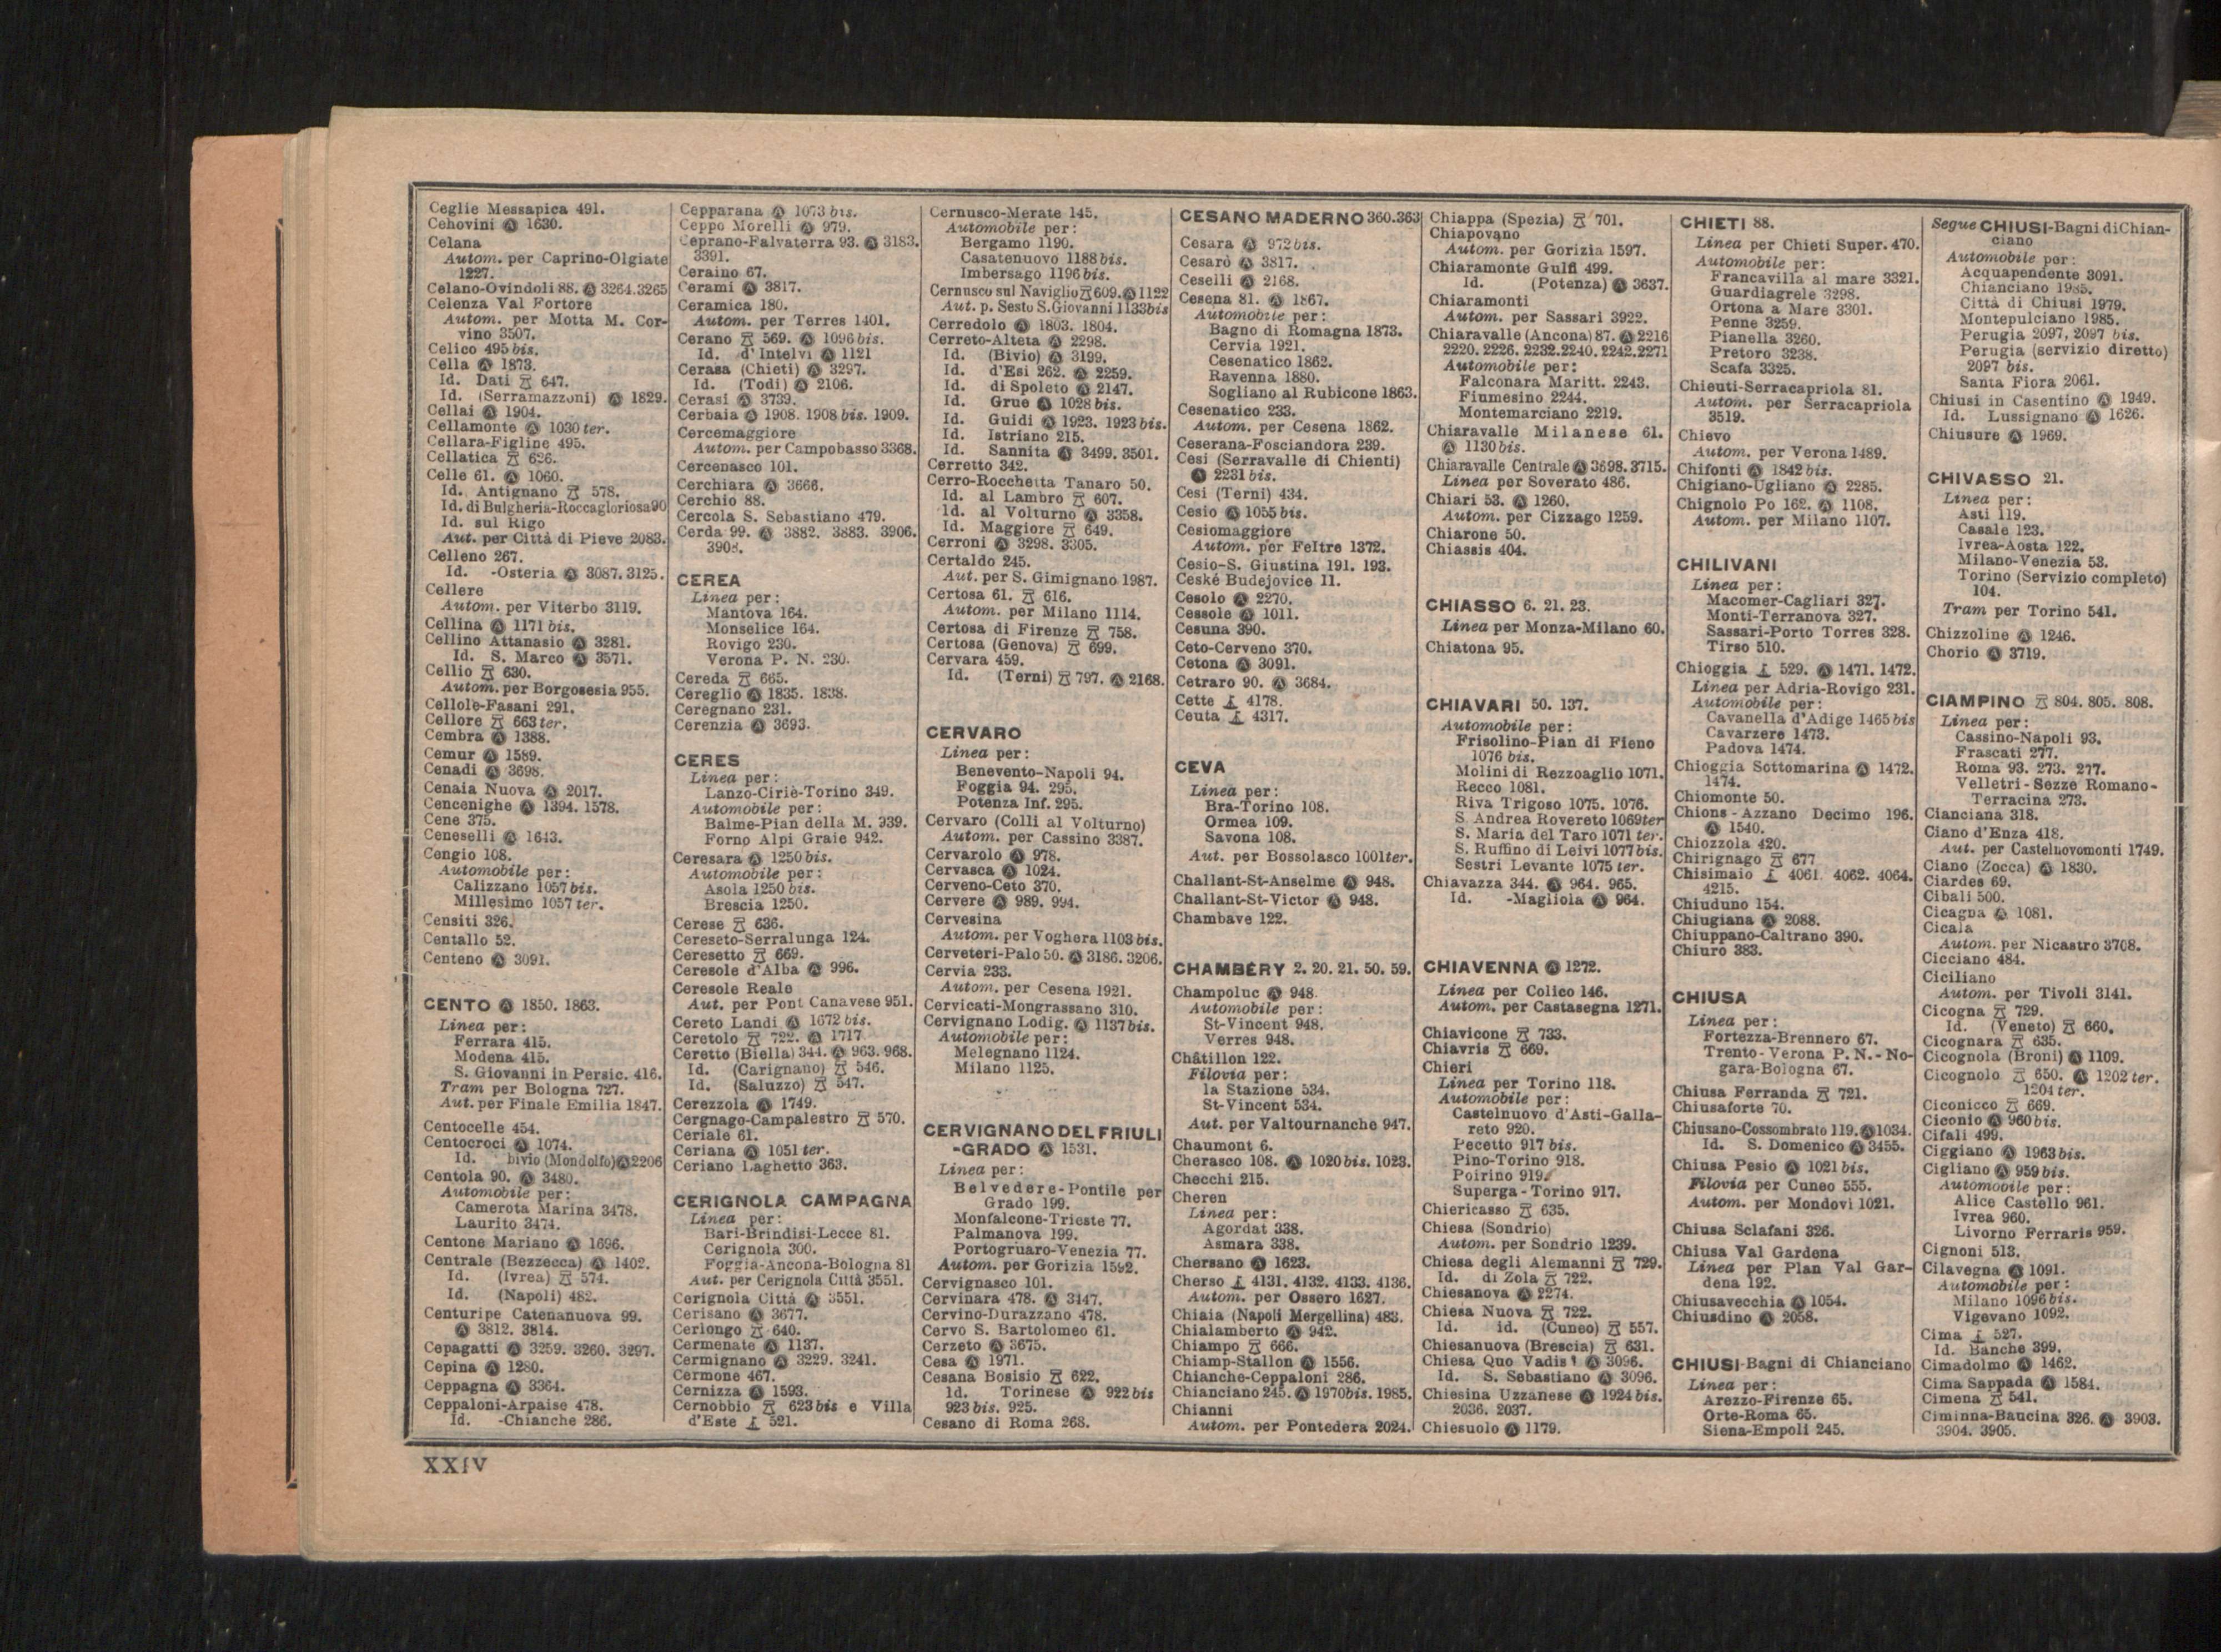 Ceglie Messapica 491.
Cehovini Ⓐ 1630.
Celana
Autom. per Caprino-Olgiate
1227.
Celano-Ovindoli 88. Ⓐ 3264.3265
Celenza Val Fortore
Autom. per Motta M. Cor-
vino 3507.
Celico 495 bis.
Cella Ⓐ 1873.
Id. Dati 647.
Id. (Serramazzoni) Ⓐ 1829.
Cellai Ⓐ 1904.
Cellamonte Ⓐ 1030 ter.
Cellara-Figline 495.
Cellatica 626.
Celle 61. Ⓐ 1060.
Id. Antignano 578.
Id. di Bulgheria-Roccagloriosa 90
Id. sul Rigo
Aut. per Città di Pieve 2083.
Celleno 267.
Id. -Osteria Ⓐ 3087. 3125.
Cellere
Autom. per Viterbo 3119.
Cellina Ⓐ 1171 bis.
Cellino Attanasio Ⓐ 3281.
Id. S. Marco Ⓐ 3571.
Cellio 630.
Autom. per Borgosesia 955.
Cellole-Fasani 291.
Cellore 663 ter.
Cembra Ⓐ 1388.
Cemur Ⓐ 1589.
Cenadi Ⓐ 3698.
Cenaia Nuova Ⓐ 2017.
Cencenighe Ⓐ 1394. 1578.
Cene 375.
Ceneselli Ⓐ 1643.
Cengio 108.
Automobile per:
Calizzano 1057 bis.
Millesimo 1057 ter.
Censiti 326.
Centallo 52.
Centeno Ⓐ 3091.
CENTO Ⓐ 1850. 1863.
Linea per:
Ferrara 415.
Modena 415.
S. Giovanni in Persic. 416.
Tram per Bologna 727.
Aut. per Finale Emilia 1847.
Centocelle 454.
Centocroci Ⓐ 1074.
Id. bivio (Mondolfo) Ⓐ 2206
Centola 90. Ⓐ 3480.
Automobile per:
Camerota Marina 3478.
Laurito 3474.
Centone Mariano Ⓐ 1696.
Centrale (Bezzecca) Ⓐ 1402.
Id. (Ivrea) 574.
Id. (Napoli) 482.
Centuripe Catenanuova 99.
Ⓐ 3812. 3814.
Cepagatti Ⓐ 3259. 3260. 3297.
Cepina Ⓐ 1280.
Ceppagna Ⓐ 3364.
Ceppaloni-Arpaise 478.
Id. -Chianche 286.
Cepparana Ⓐ 1073 bis.
Ceppo Morelli Ⓐ 979.
Ceprano-Falvaterra 93. Ⓐ 3183.
3391.
Ceraino 67.
Cerami Ⓐ 3817.
Ceramica 180.
Autom. per Terres 1401.
Cerano 569. Ⓐ 1096 bis.
Id. d'Intelvi Ⓐ 1121
Cerasa (Chieti) Ⓐ 3297.
Id. (Todi) Ⓐ 2106.
Cerasi Ⓐ 3739.
Cerbaia Ⓐ 1908. 1908 bis. 1909.
Cercemaggiore
Autom. per Campobasso 3368.
Cercenasco 101.
Cerchiara Ⓐ 3666.
Cerchio 88.
Cercola S. Sebastiano 479.
Cerda 99. Ⓐ 3882. 3883. 3906.
3908.
CEREA
Linea per:
Mantova 164.
Monselice 164.
Rovigo 230.
Verona P. N. 230.
Cereda 665.
Cereglio Ⓐ 1835. 1838.
Ceregnano 231.
Cerenzia Ⓐ 3693.
CERES
Linea per:
Lanzo-Ciriè-Torino 349.
Automobile per:
Balme-Pian della M. 939.
Forno Alpi Graie 942.
Ceresara Ⓐ 1250 bis.
Automobile per:
Asola 1250 bis.
Brescia 1250.
Cerese 636.
Cereseto-Serralunga 124.
Ceresetto 669.
Ceresole d'Alba Ⓐ 996.
Ceresole Reale
Aut. per Pont Canavese 951.
Cereto Landi Ⓐ 1672 bis.
Ceretolo 722. Ⓐ 1717
Ceretto (Biella) 344. Ⓐ 963. 968.
Id. (Carignano) 546.
Id. (Saluzzo) 547.
Cerezzola Ⓐ 1749.
Cergnago-Campalestro 570.
Ceriale 61.
Ceriana Ⓐ 1051 ter.
Ceriano Laghetto 363.
CERIGNOLA CAMPAGNA
Linea per:
Bari-Brindisi-Lecce 81.
Cerignola 300.
Foggia-Ancona-Bologna 81
Aut. per Cerignola Città 3551.
Cerignola Città Ⓐ 3551.
Cerisano Ⓐ 3677.
Cerlongo 640.
Cermenate Ⓐ 1137.
Cermignano Ⓐ 3229. 3241.
Cermone 467.
Cernizza Ⓐ 1593.
Cernobbio 623 bis e Villa
d'Este 521.
Cernusco-Merate 145.
Automobile per:
Bergamo 1190.
Casatenuovo 1188 bis.
Imbersago 1196 bis.
Cernusco sul Naviglio 609. Ⓐ 1122
Aut. p. Sesto S. Giovanni 1133 bis
Cerredolo Ⓐ 1803. 1804.
Cerreto-Alteta Ⓐ 2298.
Id. (Bivio) Ⓐ 3199.
Id. d'Esi 262. Ⓐ 2259.
Id. di Spoleto Ⓐ 2147.
Id. Grue Ⓐ 1028 bis.
Id. Guidi Ⓐ 1923. 1923 bis.
Id. Istriano 215.
Id. Sannita Ⓐ 3499. 3501.
Cerretto 342.
Cerro-Rocchetta Tanaro 50.
Id. al Lambro 607.
Id. al Volturno Ⓐ 3358.
Id. Maggiore 649.
Cerroni Ⓐ 3298. 3305.
Certaldo 245.
Aut. per S. Gimignano 1987.
Certosa 61. 616.
Autom. per Milano 1114.
Certosa di Firenze 758.
Certosa (Genova) 699.
Cervara 459.
Id. (Terni) 797. Ⓐ 2168.
CERVARO
Linea per:
Benevento-Napoli 94.
Foggia 94. 295.
Potenza Inf. 295.
Cervaro (Colli al Volturno)
Autom. per Cassino 3387.
Cervarolo Ⓐ 978.
Cervasca Ⓐ 1024.
Cerveno-Ceto 370.
Cervere Ⓐ 989. 994.
Cervesina
Autom. per Voghera 1103 bis.
Cerveteri-Palo 50. Ⓐ 3186. 3206.
Cervia 233.
Autom. per Cesena 1921.
Cervicati-Mongrassano 310.
Cervignano Lodig. Ⓐ 1137 bis.
Automobile per:
Melegnano 1124.
Milano 1125.
CERVIGNANO DEL FRIULI
-GRADO Ⓐ 1531.
Linea per:
Belvedere-Pontile per
Grado 199.
Monfalcone-Trieste 77.
Palmanova 199.
Portogruaro-Venezia 77.
Autom. per Gorizia 1592.
Cervignasco 101.
Cervinara 478. Ⓐ 3147.
Cervino-Durazzano 478.
Cervo S. Bartolomeo 61.
Cerzeto Ⓐ 3675.
Cesa Ⓐ 1971.
Cesana Bosisio 622.
Id. Torinese Ⓐ 922 bis
923 bis. 925.
Cesano di Roma 268.
CESANO MADERNO 360.363
Cesara Ⓐ 972 bis.
Cesarò Ⓐ 3817.
Ceselli Ⓐ 2168.
Cesena 81. Ⓐ 1867.
Automobile per:
Bagno di Romagna 1873.
Cervia 1921.
Cesenatico 1862.
Ravenna 1880.
Sogliano al Rubicone 1863.
Cesenatico 233.
Autom. per Cesena 1862.
Ceserana-Fosciandora 239.
Cesi (Serravalle di Chienti)
Ⓐ 2231 bis.
Cesi (Terni) 434.
Cesio Ⓐ 1055 bis.
Cesiomaggiore
Autom. per Feltre 1372.
Cesio-S. Giustina 191. 193.
Ceské Budejovice 11.
Cesolo Ⓐ 2270.
Cessole Ⓐ 1011.
Cesuna 390.
Ceto-Cerveno 370.
Cetona Ⓐ 3091.
Cetraro 90. Ⓐ 3684.
Cette 4178.
Ceuta 4317.
CEVA
Linea per:
Bra-Torino 108.
Ormea 109.
Savona 108.
Aut. per Bossolasco 1001 ter.
Challant-St-Anselme Ⓐ 948.
Challant-St-Victor Ⓐ 948.
Chambave 122.
CHAMBÉRY 2. 20. 21. 50. 59.
Champoluc Ⓐ 948.
Automobile per:
St-Vincent 948.
Verres 948.
Châtillon 122.
Filovia per:
la Stazione 534.
St-Vincent 534.
Aut. per Valtournanche 947.
Chaumont 6.
Cherasco 108. Ⓐ 1020 bis. 1023.
Checchi 215.
Cheren
Linea per:
Agordat 338.
Asmara 338.
Chersano Ⓐ 1623.
Cherso 4131. 4132. 4133. 4136.
Autom. per Ossero 1627.
Chiaia (Napoli Mergellina) 483.
Chialamberto Ⓐ 942.
Chiampo 666.
Chiamp-Stallon Ⓐ 1556.
Chianche-Ceppaloni 286.
Chianciano 245. Ⓐ 1970 bis. 1985.
Chianni
Autom. per Pontedera 2024.
Chiappa (Spezia) 701.
Chiapovano
Autom. per Gorizia 1597.
Chiaramonte Gulfi 499.
Id. (Potenza) Ⓐ 3637.
Chiaramonti
Autom. per Sassari 3922.
Chiaravalle (Ancona) 87. Ⓐ 2216
2220. 2226. 2232. 2240. 2242. 2271
Automobile per:
Falconara Maritt. 2243.
Fiumesino 2244.
Montemarciano 2219.
Chiaravalle Milanese 61.
Ⓐ 1130 bis.
Chiaravalle Centrale Ⓐ 3698. 3715.
Linea per Soverato 486.
Chiari 53. Ⓐ 1260.
Autom. per Cizzago 1259.
Chiarone 50.
Chiassis 404.
CHIASSO 6. 21. 23.
Linea per Monza-Milano 60.
Chiatona 95.
CHIAVARI 50. 137.
Automobile per:
Frisolino-Pian di Fieno
1076 bis.
Molini di Rezzoaglio 1071.
Recco 1081.
Riva Trigoso 1075. 1076.
S. Andrea Rovereto 1069 ter
S. Maria del Taro 1071 ter.
S. Ruffino di Leivi 1077 bis.
Sestri Levante 1075 ter.
Chiavazza 344. Ⓐ 964. 965.
Id. -Magliola Ⓐ 964.
CHIAVENNA Ⓐ 1272.
Linea per Colico 146.
Autom. per Castasegna 1271.
Chiavicone 733.
Chiavris 669.
Chieri
Linea per Torino 118.
Automobile per:
Castelnuovo d'Asti-Galla-
reto 920.
Pecetto 917 bis.
Pino-Torino 918.
Poirino 919.
Superga-Torino 917.
Chiericasso 635.
Chiesa (Sondrio)
Autom. per Sondrio 1239.
Chiesa degli Alemanni 729.
Id. di Zola 722.
Chiesanova Ⓐ 2274.
Chiesa Nuova 722.
Id. id. (Cuneo) 557.
Chiesanuova (Brescia) 631.
Chiesa Quo Vadis? Ⓐ 3096.
Id. S. Sebastiano Ⓐ 3096.
Chiesina Uzzanese Ⓐ 1924 bis.
2036. 2037.
Chiesuolo Ⓐ 1179.
CHIETI 88.
Linea per Chieti Super. 470.
Automobile per:
Francavilla al mare 3321.
Guardiagrele 3298.
Ortona a Mare 3301.
Penne 3259.
Pianella 3260.
Pretoro 3238.
Scafa 3325.
Chieuti-Serracapriola 81.
Autom. per Serracapriola
3519.
Chievo
Autom. per Verona 1489.
Chifonti Ⓐ 1842 bis.
Chigiano-Ugliano Ⓐ 2285.
Chignolo Po 162. Ⓐ 1108.
Autom. per Milano 1107.
CHILIVANI
Linea per:
Macomer-Cagliari 327.
Monti-Terranova 327.
Sassari-Porto Torres 328.
Tirso 510.
Chioggia 529. Ⓐ 1471. 1472.
Linea per Adria-Rovigo 231.
Automobile per:
Cavanella d'Adige 1465 bis
Cavarzere 1473.
Padova 1474.
Chioggia Sottomarina Ⓐ 1472.
1474.
Chiomonte 50.
Chions-Azzano Decimo 196.
Ⓐ 1540.
Chiozzola 420.
Chirignago 677
Chisimaio 4061. 4062. 4064.
4215.
Chiuduno 154.
Chiugiana Ⓐ 2088.
Chiuppano-Caltrano 390.
Chiuro 383.
CHIUSA
Linea per:
Fortezza-Brennero 67.
Trento-Verona P. N.-No-
gara-Bologna 67.
Chiusa Ferranda 721.
Chiusaforte 70.
Chiusano-Cossombrato 119. Ⓐ 1034.
Id. S. Domenico Ⓐ 3455.
Chiusa Pesio Ⓐ 1021 bis.
Filovia per Cuneo 555.
Autom. per Mondovì 1021.
Chiusa Sclafani 326.
Chiusa Val Gardena
Linea per Plan Val Gar-
dena 192.
Chiusavecchia Ⓐ 1054.
Chiusdino Ⓐ 2058.
CHIUSI-Bagni di Chianciano
Linea per:
Arezzo-Firenze 65.
Orte-Roma 65.
Siena-Empoli 245.
Segue CHIUSI-Bagni di Chian-
ciano
Automobile per:
Acquapendente 3091.
Chianciano 1985.
Città di Chiusi 1979.
Montepulciano 1985.
Perugia 2097, 2097 bis.
Perugia (servizio diretto)
2097 bis.
Santa Fiora 2061.
Chiusi in Casentino Ⓐ 1949.
Id. Lussignano Ⓐ 1626.
Chiusure Ⓐ 1969.
CHIVASSO 21.
Linea per:
Asti 119.
Casale 123.
Ivrea-Aosta 122.
Milano-Venezia 53.
Torino (Servizio completo)
104.
Tram per Torino 541.
Chizzoline Ⓐ 1246.
Chorio Ⓐ 3719.
CIAMPINO 804. 805. 808.
Linea per:
Cassino-Napoli 93.
Frascati 277.
Roma 93. 273. 277.
Velletri-Sezze Romano-
Terracina 273.
Cianciana 318.
Ciano d'Enza 418.
Aut. per Castelnovomonti 1749.
Ciano (Zocca) Ⓐ 1830.
Ciardes 69.
Cibali 500.
Cicagna Ⓐ 1081.
Cicala
Autom. per Nicastro 3708.
Cicciano 484.
Ciciliano
Autom. per Tivoli 3141.
Cicogna 729.
Id. (Veneto) 660.
Cicognara 635.
Cicognola (Broni) Ⓐ 1109.
Cicognolo 650. Ⓐ 1202 ter.
1204 ter.
Ciconicco 669.
Ciconio Ⓐ 960 bis.
Cifali 499.
Ciggiano Ⓐ 1963 bis.
Cigliano Ⓐ 959 bis.
Automobile per:
Alice Castello 961.
Ivrea 960.
Livorno Ferraris 959.
Cignoni 513.
Cilavegna Ⓐ 1091.
Automobile per:
Milano 1096 bis.
Vigevano 1092.
Cima 527.
Id. Banche 399.
Cimadolmo Ⓐ 1462.
Cima Sappada Ⓐ 1584.
Cimena 541.
Ciminna-Baucina 326. Ⓐ 3903.
3904. 3905.
XXIV